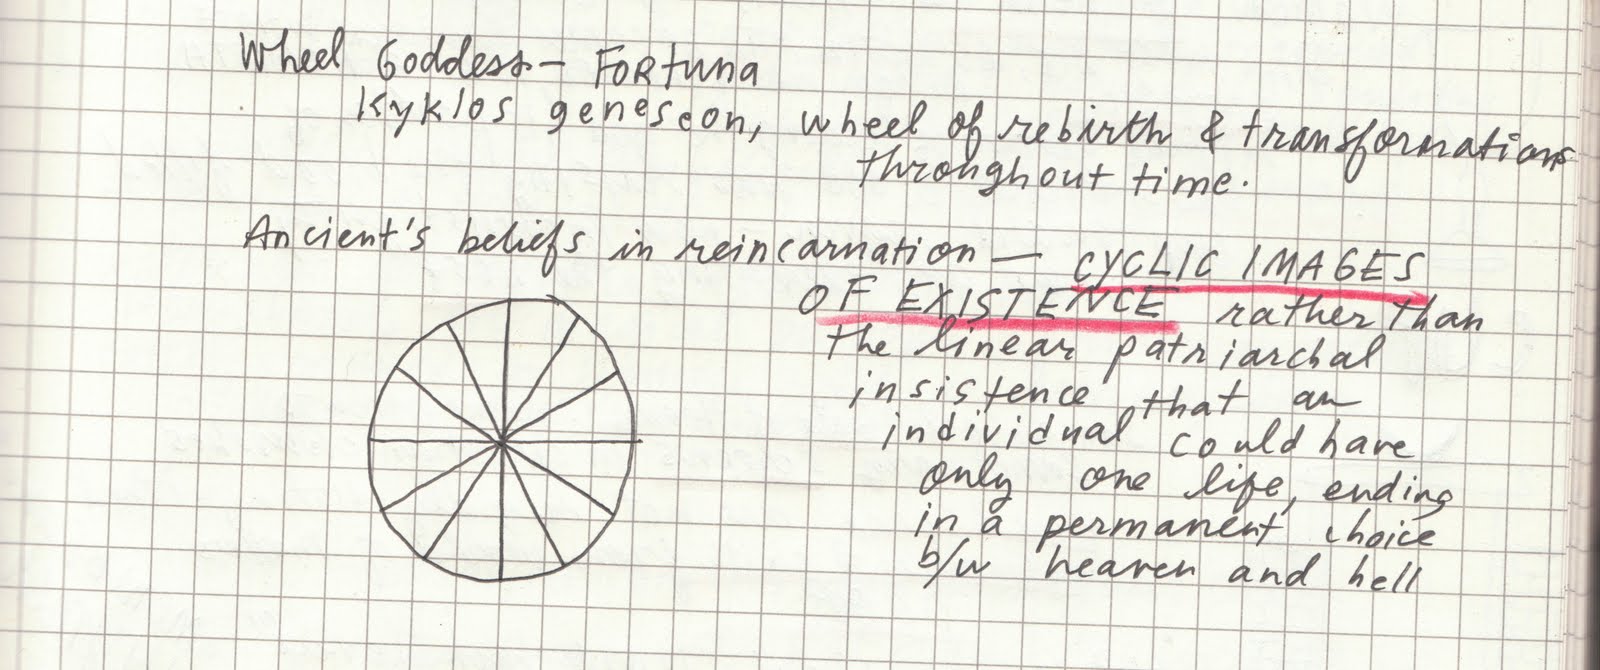 Wheel Goddess – FORtuna
Kyklos geneseon, wheel of rebirth & transformations
throughout time.
Ancient's beliefs in reincarnation – CYCLIC IMAGES
OF EXISTENCE rather than
the linear patriarchal
insistence that an
individual could have
only one life, ending
in a permanent choice
b/w heaven and hell